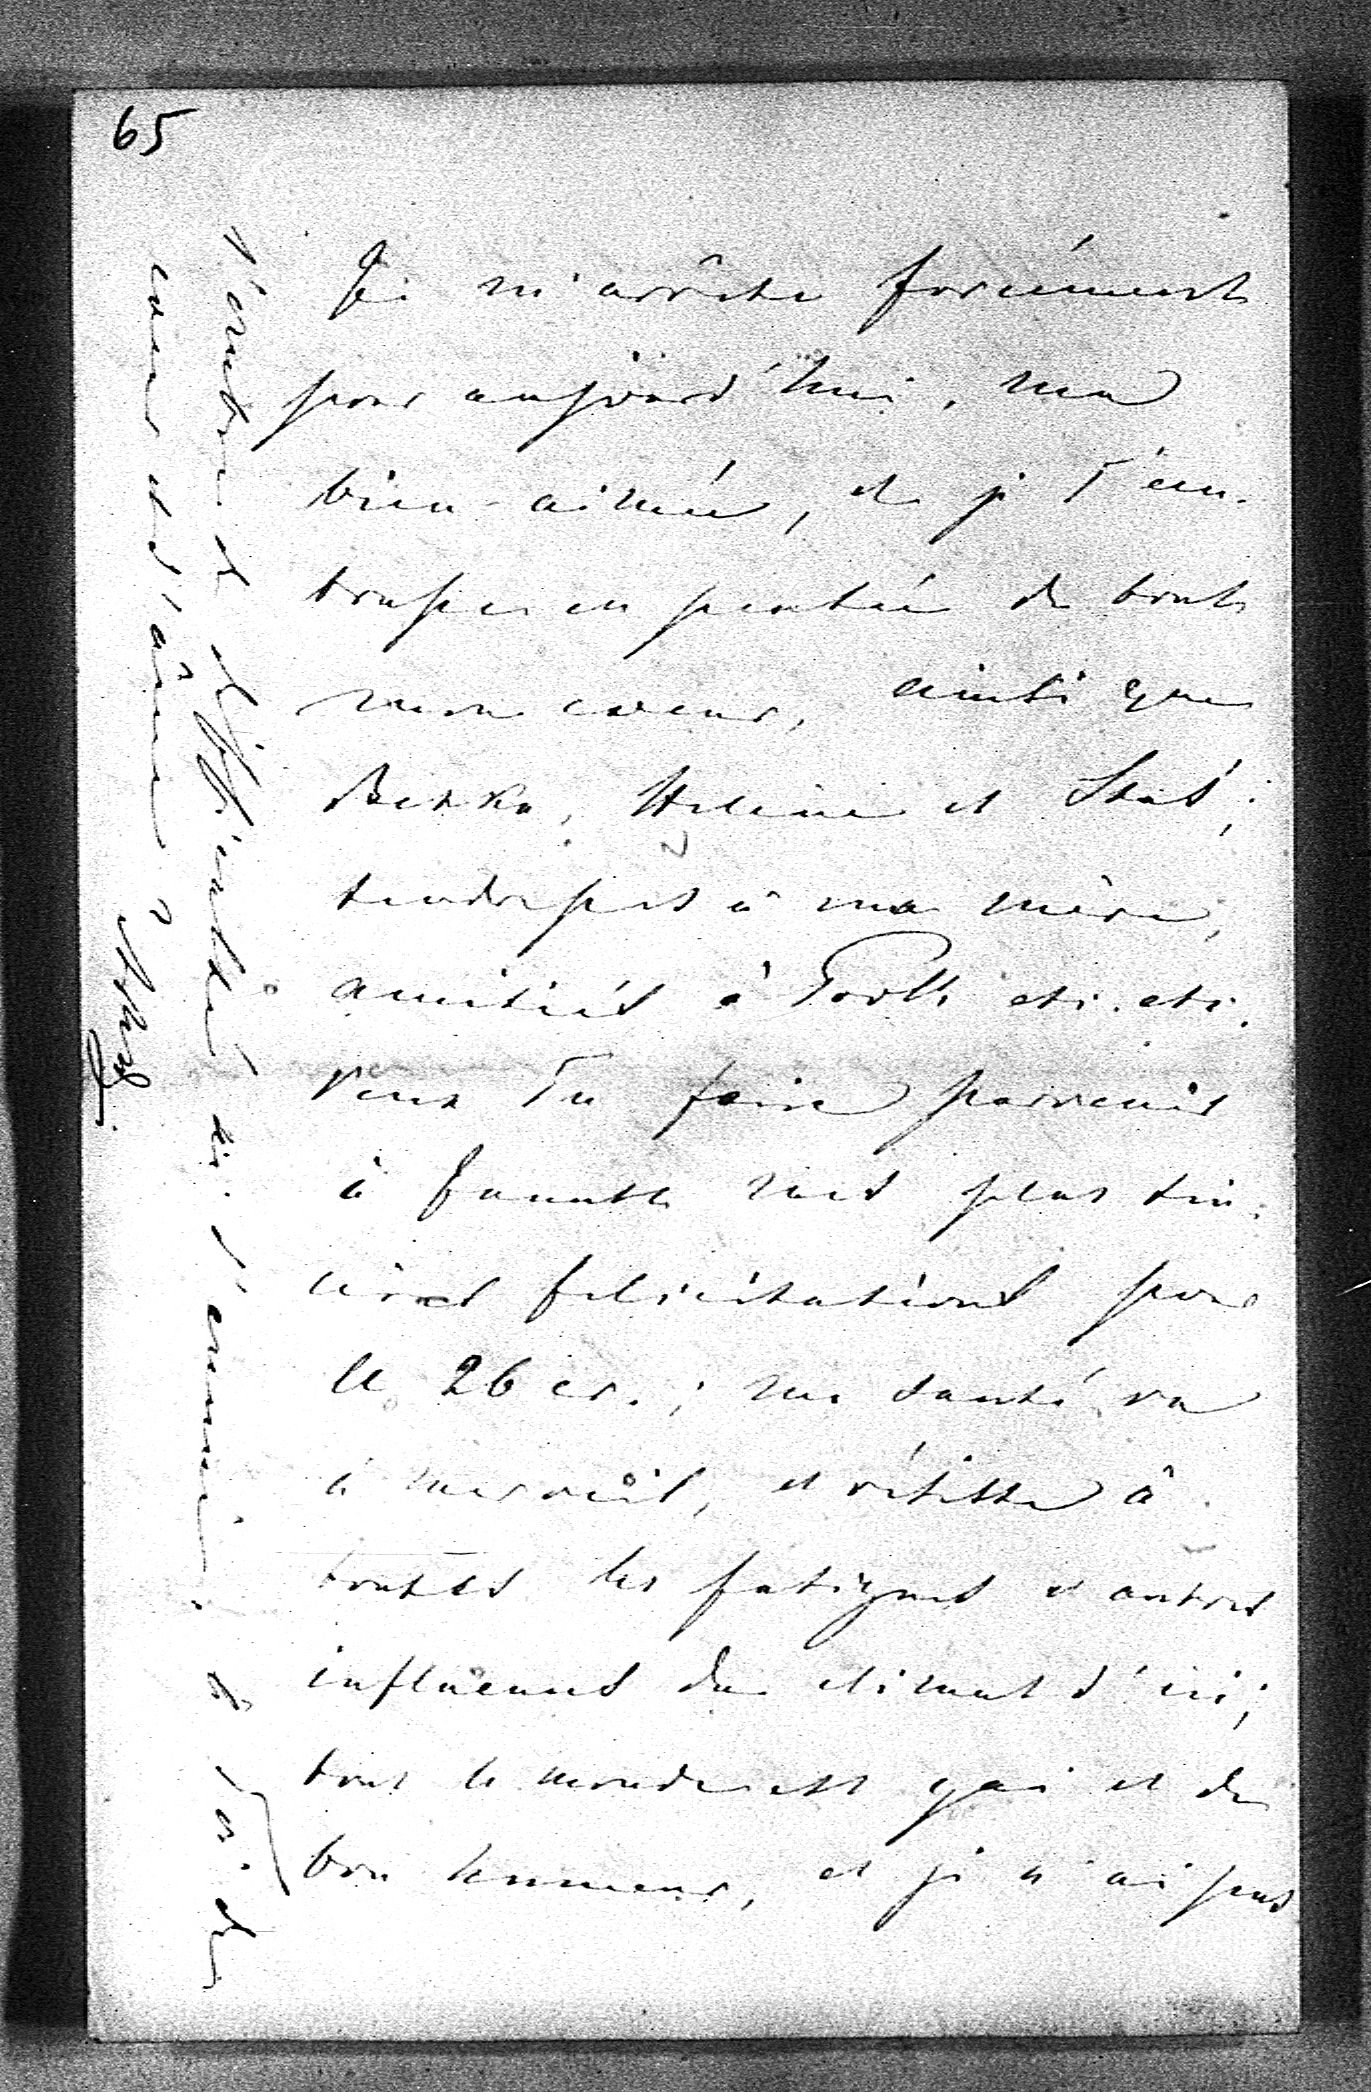 65
Je m'arrête forcément
pour aujourd'hui, ma
bien-aimée, et je T'em-
brasse en pensée de tout
mon coeur, ainsi que
Bezka, Helene et Stas;
tendresses à ma mère,
amitiés à Potts etc. etc.
Veux Tu faire parvenir
à Fanette mes plus sin-
cères felicitations pour
le 26 cr.; ma santé va
à merveil, et résiste à
toutes les fatigues et autres
influences du climat d'ici;
tout le monde est gai et de
bon humeur, et je n'ai pas
l'ombre de difficultés ni d'ennui. à Toi de
coeur et d'âme